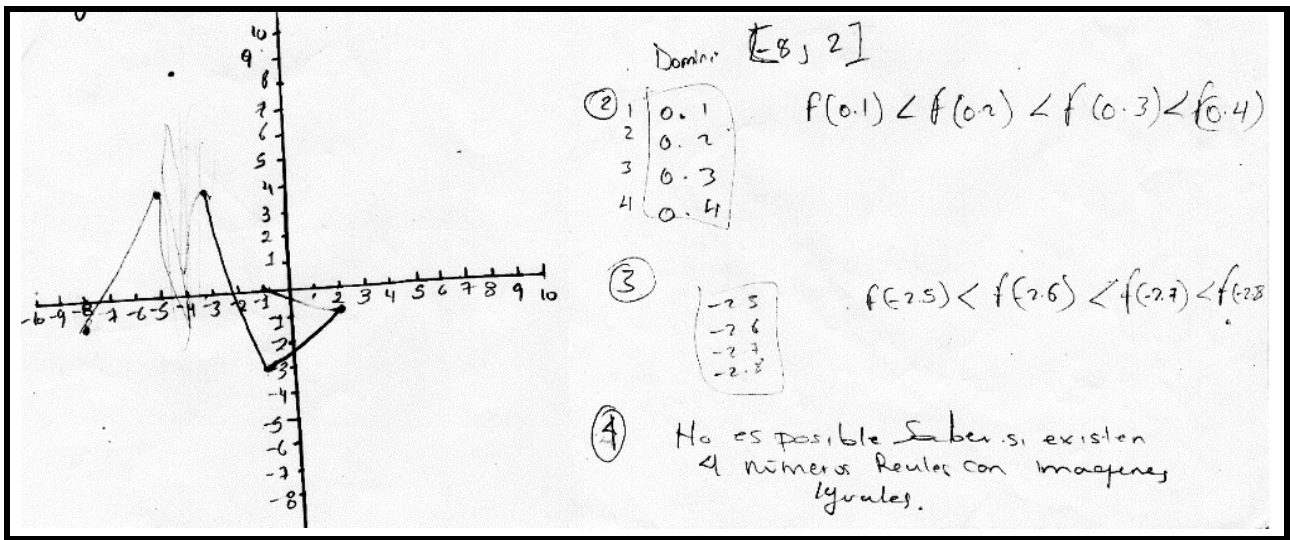 10
9
8
7
6
5
4
3
2
1
-10 -9 -8 -7 -6 -5 -4 -3 -2 -1 2 3 4 5 6 7 8 9 10
-1
-2
-3
-4
-5
-6
-7
-8
Domini [-8, 2]
② 1 0.1 f(0.1) < f(0.2) < f(0.3) < f(0.4)
2 0.2
3 0.3
4 0.4
③
-2.5 f(-2.5) < f(-2.6) < f(-2.7) < f(-2.8
-2.6
-2.7
-2.8
④ No es posible Saber si existen
4 números Reales con imagenes
Iguales.